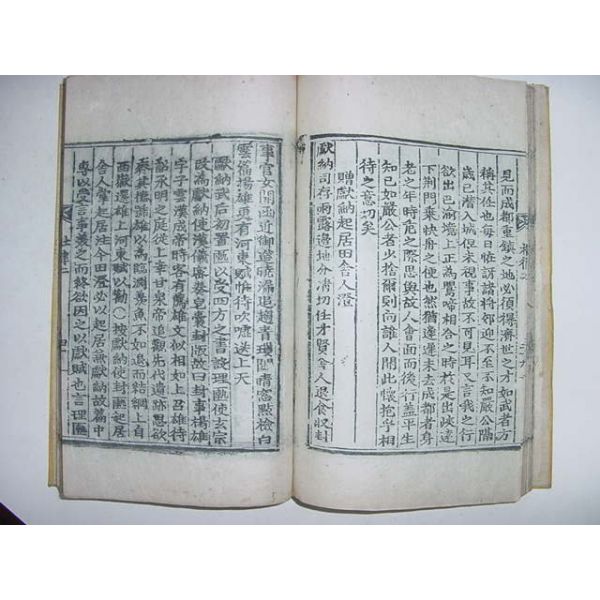 見而成都重鎮之地必須得濟世之才如武者方
稱其任也每日忙訝諸將郊迎不至不知嚴公陽
歲已潛入城但未視事故不可見耳又言我之行
欲出巴渝境上正為鶯啼相合之時於是出峽達
下荆門乘快舟之便也然猶遲遲未去成都者身
老之年時危之際思與故人會面而後行蓋平生
知已如嚴公者少捨爾則向誰人開此懷抱乎相
待之意切矣
贈獻納起居田舍人澄
獻納司存雨露邊地分清切任才賢舍人退食收封
事宮女開函近御筵曉漏追趨青瑣闥晴窓點檢白
雲篇揚雄更有河東賦惟待吹噓送上天
獻納武后初置匭以受四方之書設理匭使玄宗
改為獻納使漢儀密奏皂囊封版故曰封事楊雄
字子雲漢成帝時客有薦雄文似相如上召雄待
詔承明之庭從上幸甘泉帝追觀先代遺跡思欲
雄以為臨淵羨魚不如退而結網自
西嶽還雄上河東賦以勸〇按獻納使封匭起居
舍人掌起居注今田澄必以起居兼獻納故篇中
專以受言事美之而終欲因之以獻賦也言理匭
杜律二